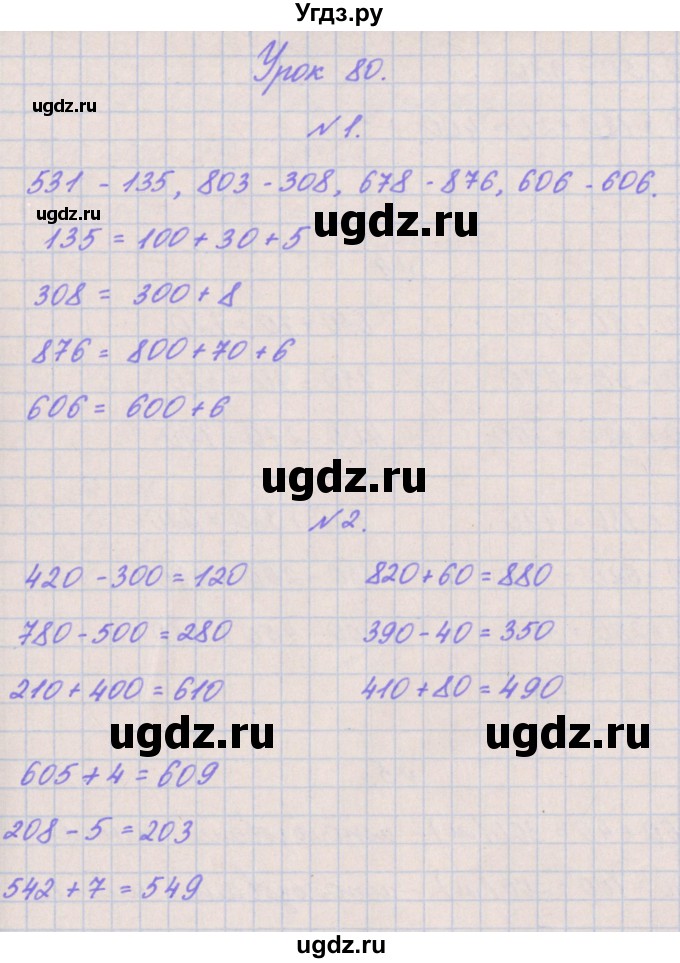 Угдз.ру
Урок 80.
ugdz.ru
№1.
531 - 135, 803 - 308, 678 - 876, 606 - 606.
ugdz.ru
ugdz.ru
135 = 100 + 30 + 5
308 = 300 + 8
876 = 800 + 70 + 6
606 = 600 + 6
ugdz.ru
№2.
420 - 300 = 120
780 - 500 = 280
210 + 400 = 610
820 + 60 = 880
390 - 40 = 350
410 + 80 = 490
ugdz.ru
ugdz.ru
605 + 4 = 609
208 - 5 = 203
542 + 7 = 549
ugdz.ru